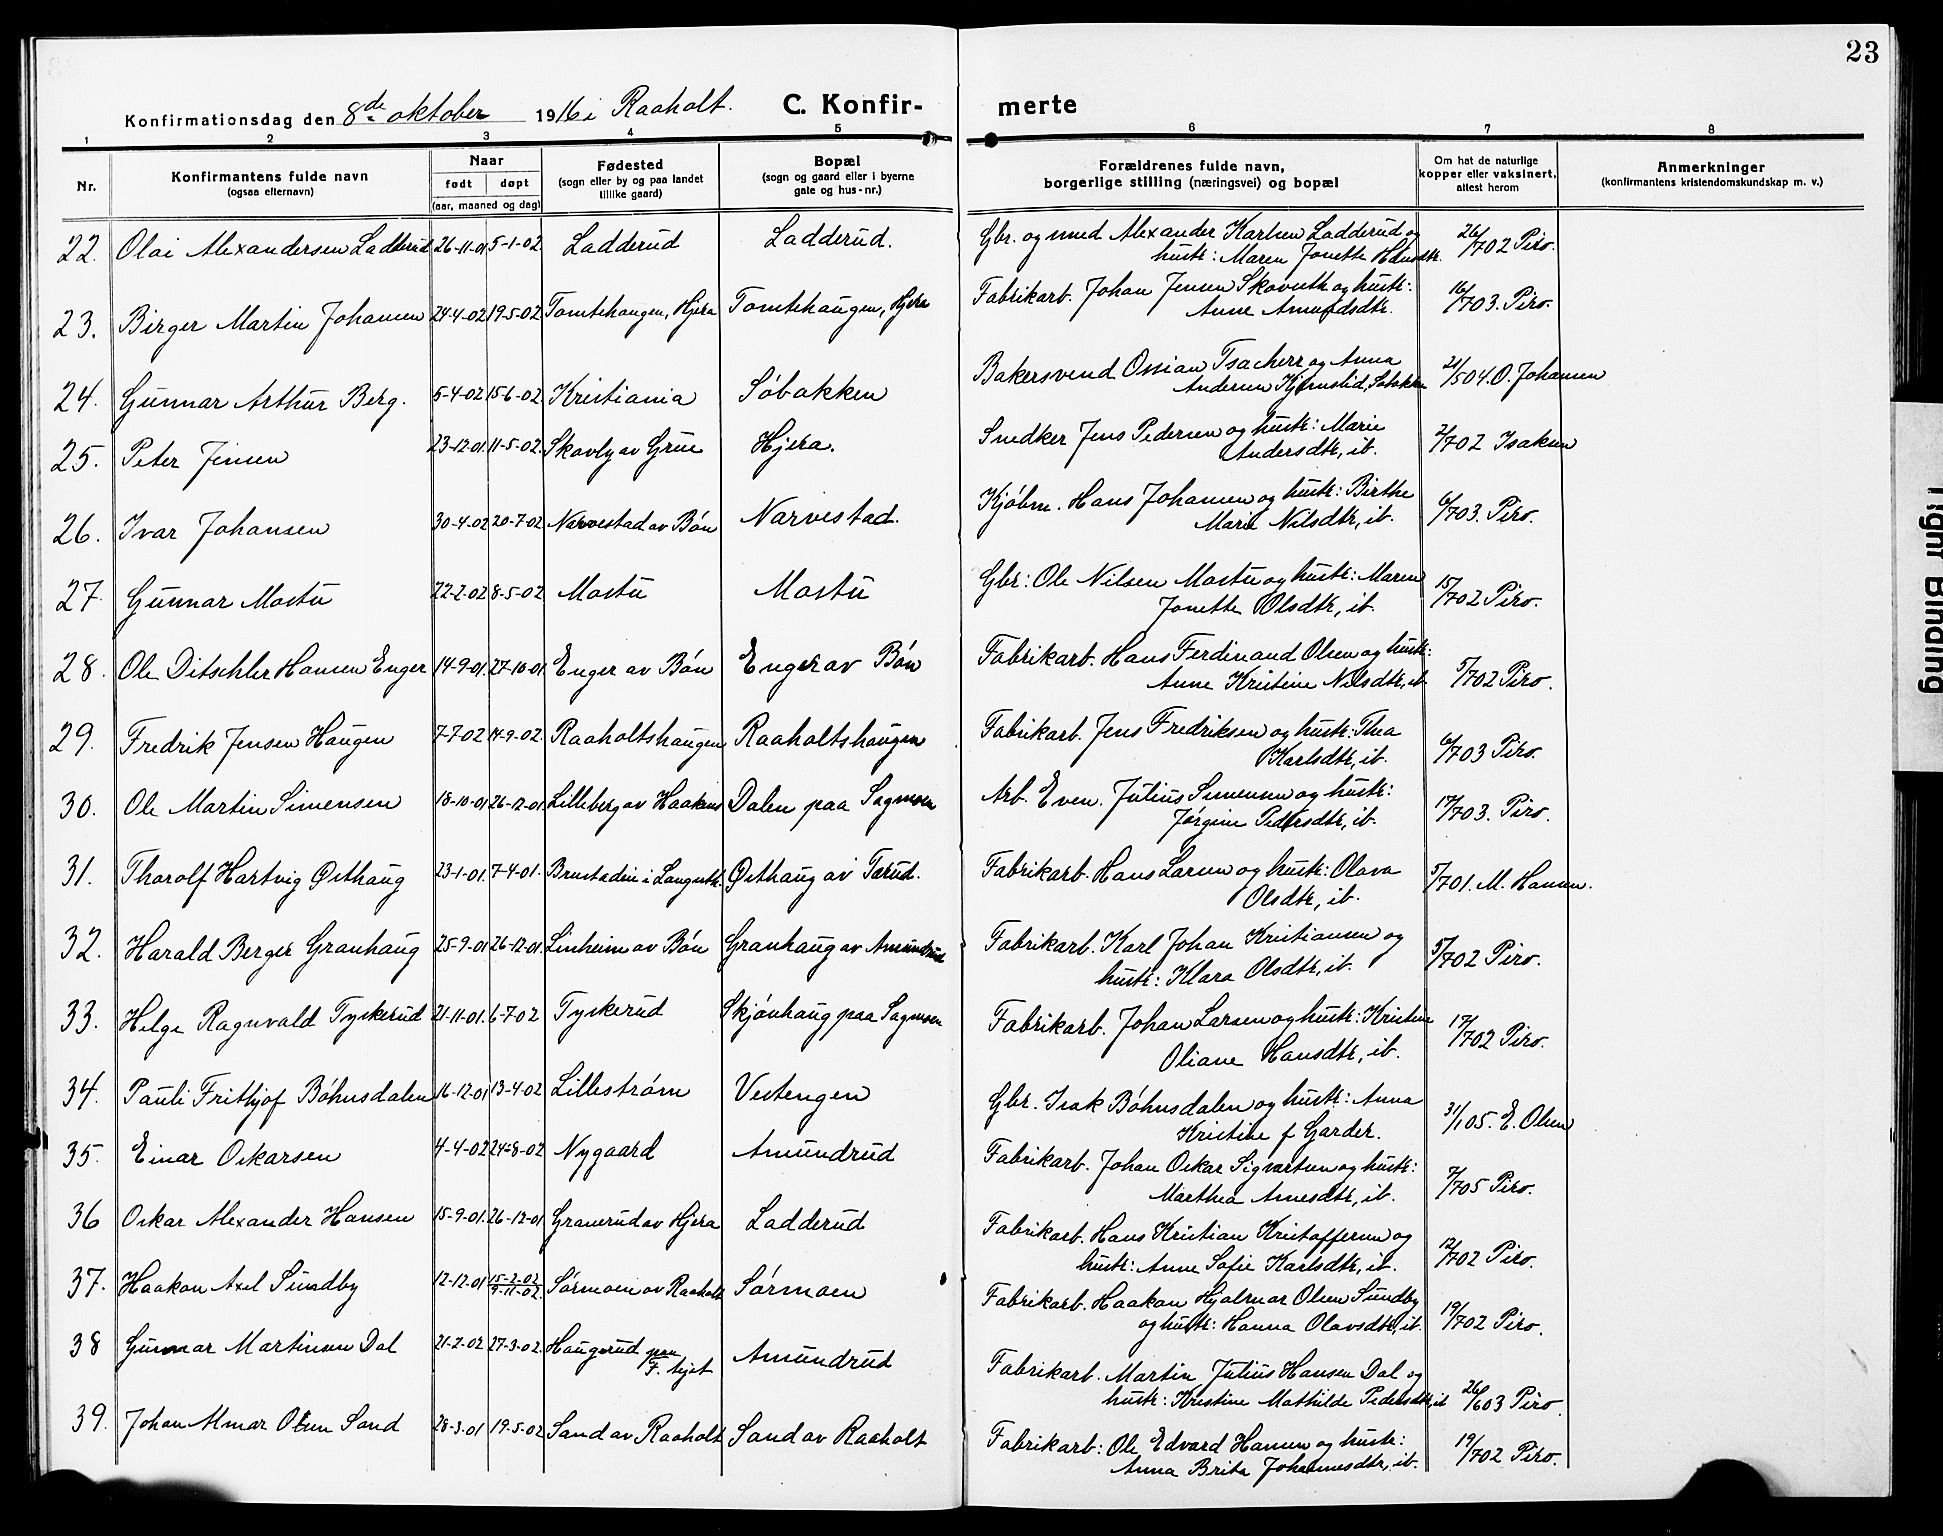 23
Konfirmationsdag den 8de oktober 1916 i Raaholt. C. Konfir- merte
1 2 3 4 5 6 7 8
Nr. Konfirmantens fulde navn (ogsaa efternavn) Naar født døpt (aar, maaned og dag) Fødested (sogn eller by og paa landet tillike gaard) Bopæl (sogn og gaard eller i byerne gate og hus-nr.) Forældrenes fulde navn, borgerlige stilling (næringsvei) og bopæl Om hat de naturlige kopper eller vaksinert, attest herom Anmerkninger (konfirmantens kristendomskundskap m. v.)
22. Olai Alexandersen Ladderud 26-11-01 5-1-02 Ladderud Ladderud. Gbr. og smed Alexander Karlsen Ladderud og
hustr: Maren Jonette Hansdtr. 26/702 Piro.
23. Birger Martin Johansen 24-4-02 19-5-02 Tomtehaugen, Hjera Tomtehaugen, Hjera Fabrikarb. Johan Jensen og hustr:
Anne Amundsdtr. 16/703. Piro.
24. Gunnar Arthur Berg. 5-4-02 15-6-02 Kristiania Söbakken Bakersvend Ossian Tsacherr og Anna
Andersen 21/504. O. Johansen
25. Peter Jensen 23-12-01. 11-5-02. Skavly av Grue Hjera. Snedker Jens Pedersen og hustr: Marie
Andersdtr, ib. 2/702 Isaksen
26. Ivar Johansen 30-4-02 20-7-02 Narvestad av Bón Narvestad. Kjóbm. Hans Johansen og hustr: Birthe
Marie Nilsdtr, ib. 6/703. Piro.
27 Gunnar Mostu 22-2-02 8-5-02 Mostu Mostu Gbr: Ole Nilsen Mostu og hustr: Maren
Jonette Olsdtr, ib. 15/702 Piro.
28. Ole Ditschler Hansen Enger 14-9-01. 27-10-01. Enger av Bón Enger av Bón Fabrikarb. Hans Ferdinand Olsen og hustr:
Anne Kristine Nilsdtr, ib. 5/702 Piro.
29. Fredrik Jensen Haugen 7-7-02 14-9-02. Raaholtshaugen Raaholtshaugen Fabrikarb. Jens Fredriksen og hustr: Thea
Karlsdtr, ib. 6/703 Piro.
30. Ole Martin Simensen 18-10-01 26-12-01. Lilleberg av Haakens Dalen paa Sagmoen Arb. Even Julius Simensen og hustr:
Jörgine Pedersdtr, ib. 17/703. Piro.
31. Tharolf Hartvig Østhaug 23-1-01. 7-4-01. Brustadin i Langseth. Østhaug av Tærud. Fabrikarb. Hans Larsen og hustr: Olava
Olsdtr, ib. 5/701. M. Hansen.
32. Harald Berger Granhaug 25-9-01 26-12-01. Linheim av Bón Granhaug av Amundrud Fabrikarb. Karl Johan Kristiansen og
hustr: Klara Olsdtr, ib. 5/702 Piro.
33. Helge Ragnvald Tyskerud 21-11-01. 6-7-02 Tyskerud Skjónhaug paa Sagmoen Fabrikarb. Johan Larsen og hustr: Kristine
Oliane Hansdtr, ib. 17/702 Piro.
34. Pauli Frithjof Böhnsdalen 16-12-01 13-4-02 Lillestróm Vestengen Gbr. Isak Böhnsdalen og hustr: Anna
Kristine f Garder. 31/105. E. Olsen
35. Einar Oskarsen 4-4-02 24-8-02 Nygaard Amundrud Fabrikarb. Johan Oskar Sigvartsen og hustr:
Marthea Arnesdtr, ib. 7/705 Piro.
36 Oskar Alexander Hansen 15-9-01. 26-12-01 Granerud av Hjera Ladderud Fabrikarb. Hans Kristian Kristoffersen og
hustr: Anne Sofie Karlsdtr, ib. 12/702 Piro.
37. Haakon Axel Sundby 12-12-01 15-2-02 9-11-02. Sörmoen av Raaholt Sörmoen Fabrikarb. Haakon Hjalmar Olsen Sundby
og hustr: Hanna Olavsdtr, ib. 19/702 Piro.
38 Gunnar Martinsen Dal 21-2-02 27-3-02. Haugerud paa F. Amundrud Fabrikarb. Martin Julius Hansen Dal og
hustr: Kristine Mathilde Pedersdtr, ib 26/603 Piro.
39. Johan Almar Olsen Sand 28-3-01 19-5-02 Sand av Raaholt Sand av Raaholt Fabrikarb: Ole Edvard Hansen og hustr:
Anna Brita Johannesdtr, ib. 19/702 Piro.
Tight Binding